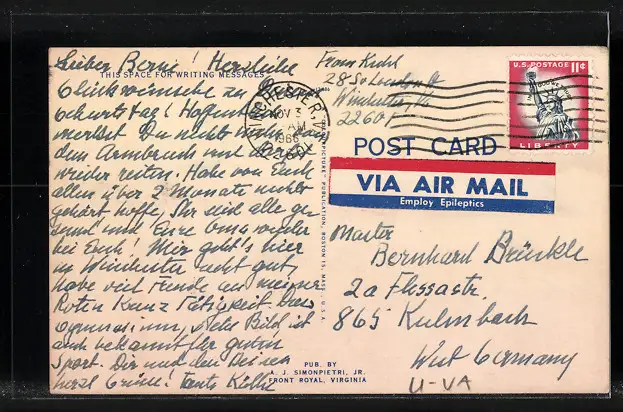 Lieber Bernie! Herzliche
THIS SPACE FOR WRITING MESSAGES
Glückwünsche zu
Geburtstag! Hoffentl
merkst Du nichts mehr
dem Armbruch und
wieder reiten. Habe von Euch
allen über 2 Monate nichts
gehört, hoffe, Ihr seid alle ge-
sund und Eure Oma wieder
bei Euch! Mir geht's hier
in Winchester recht gut,
habe viel Freude an meiner
Roten Kreuz Tätigkeit.
Gymnasium, Bild, ist
auch bekannt für guten
Sport. Dir und den Deinen
herzl. Grüße! Tante Käthe
Frau
28 So Loudon St
Winchester, Va
22601
WINCHESTER, VA
NOV 3
AM
22601
U.S. POSTAGE 11¢
IN GOD WE TRUST
LIBERTY
POST CARD
VIA AIR MAIL
Employ Epileptics
Master
Bernhard Brückle
2a Flessastr.
865 Kulmbach
West Germany
U-VA
PUB. BY
A. J. SIMONPIETRI, JR.
FRONT ROYAL, VIRGINIA
PUBLICATION, BOSTON 15, MASS., U.S.A.